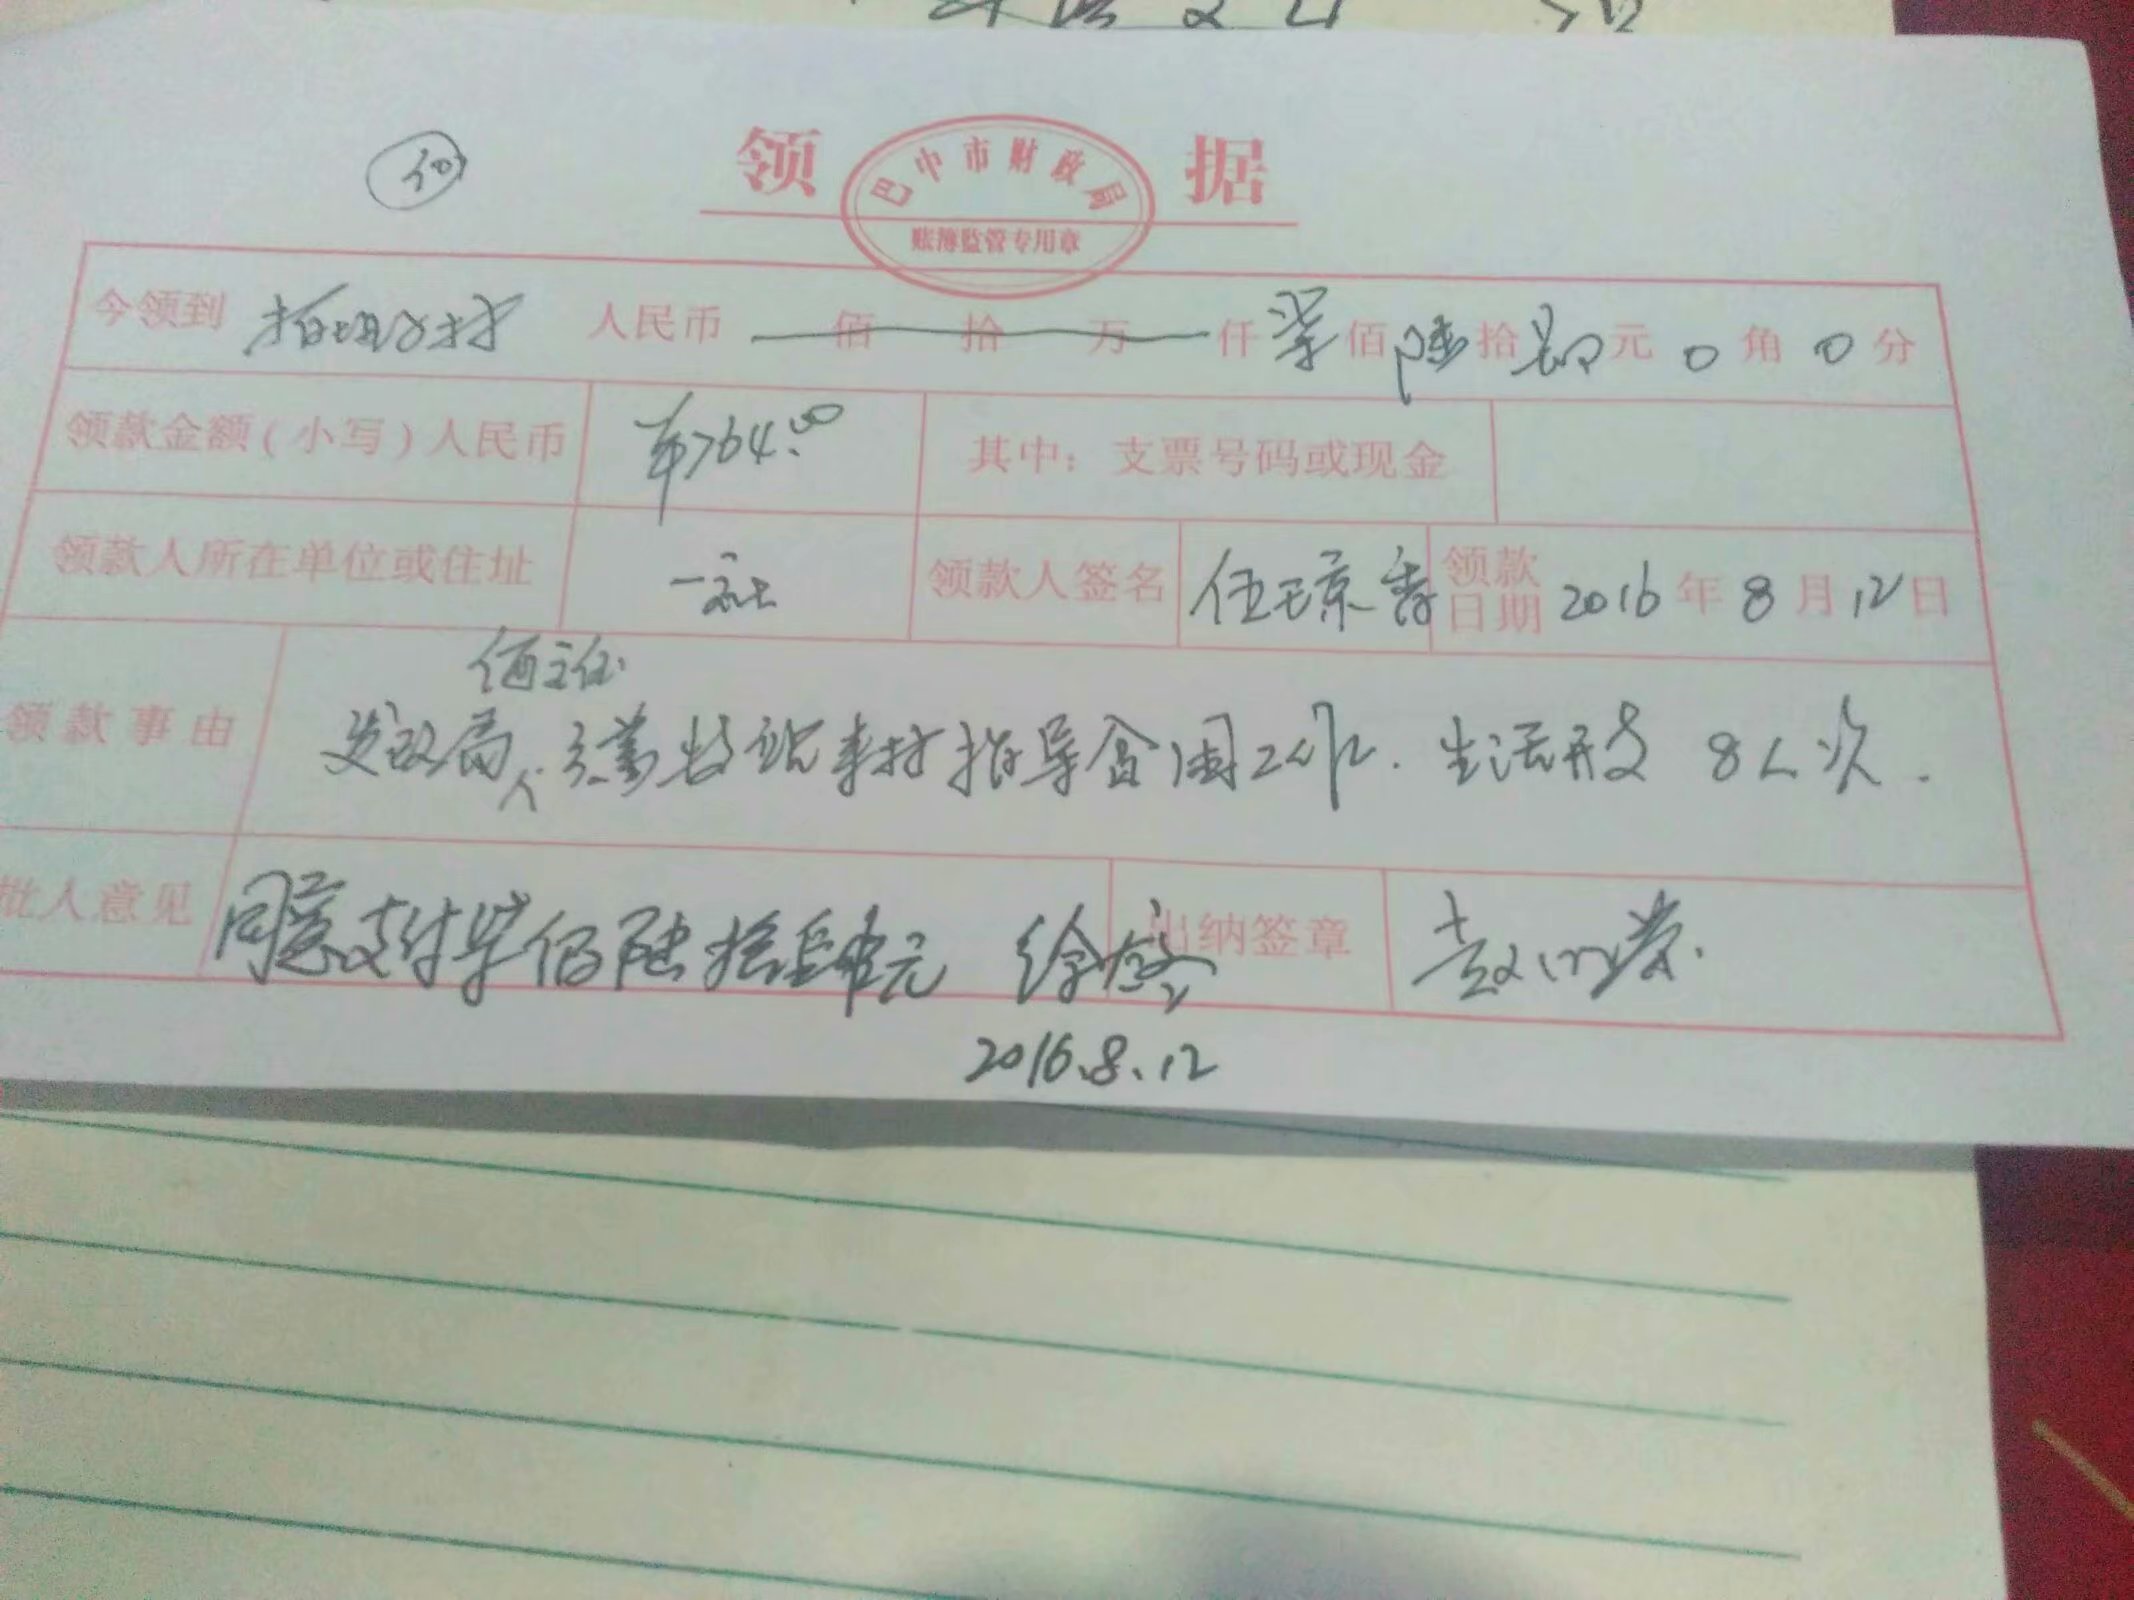 领 据
巴中市财政局
账簿监管专用章
今领到 柏垭子村 人民币 佰 拾 万 仟 柒 佰 陆 拾 肆 元 0 角 0 分
领款金额(小写)人民币 ¥764.00 其中：支票号码或现金
领款人所在单位或住址 一社 领款人签名 伍琼香 领款日期 2016 年 8 月 12 日
主任
领款事由 发改局 人 来村指导 工作. 生活开支 8人次.
批人意见 同意支付柒佰陆拾肆元 徐 出纳签章
2016.8.12